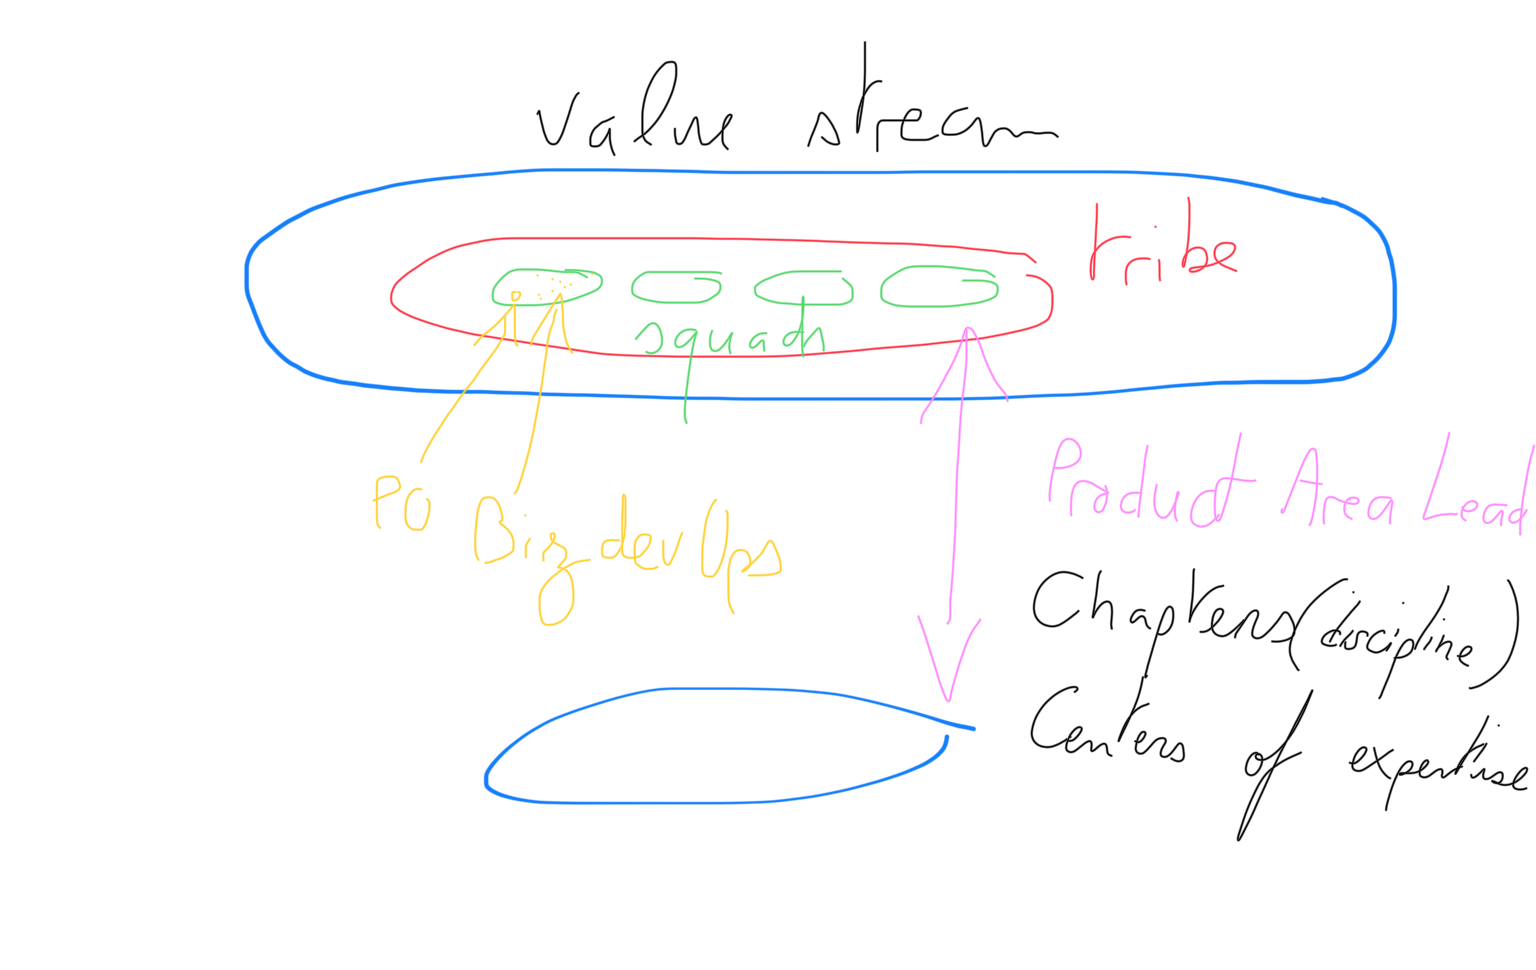 value stream
tribe
squads
PO
BizdevOps
Product Area Lead
Chapters (discipline)
Centers of expertise